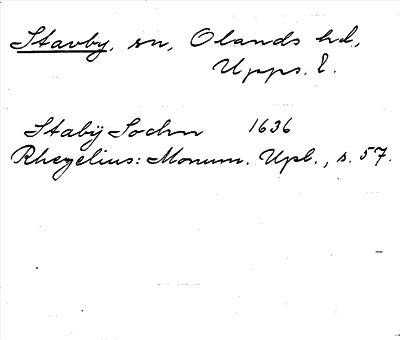 Stavby, sn, Olands hd,
Upps. l.
Stabÿ Sochn 1636
Rhezelius: Monum. Upl., s. 57.